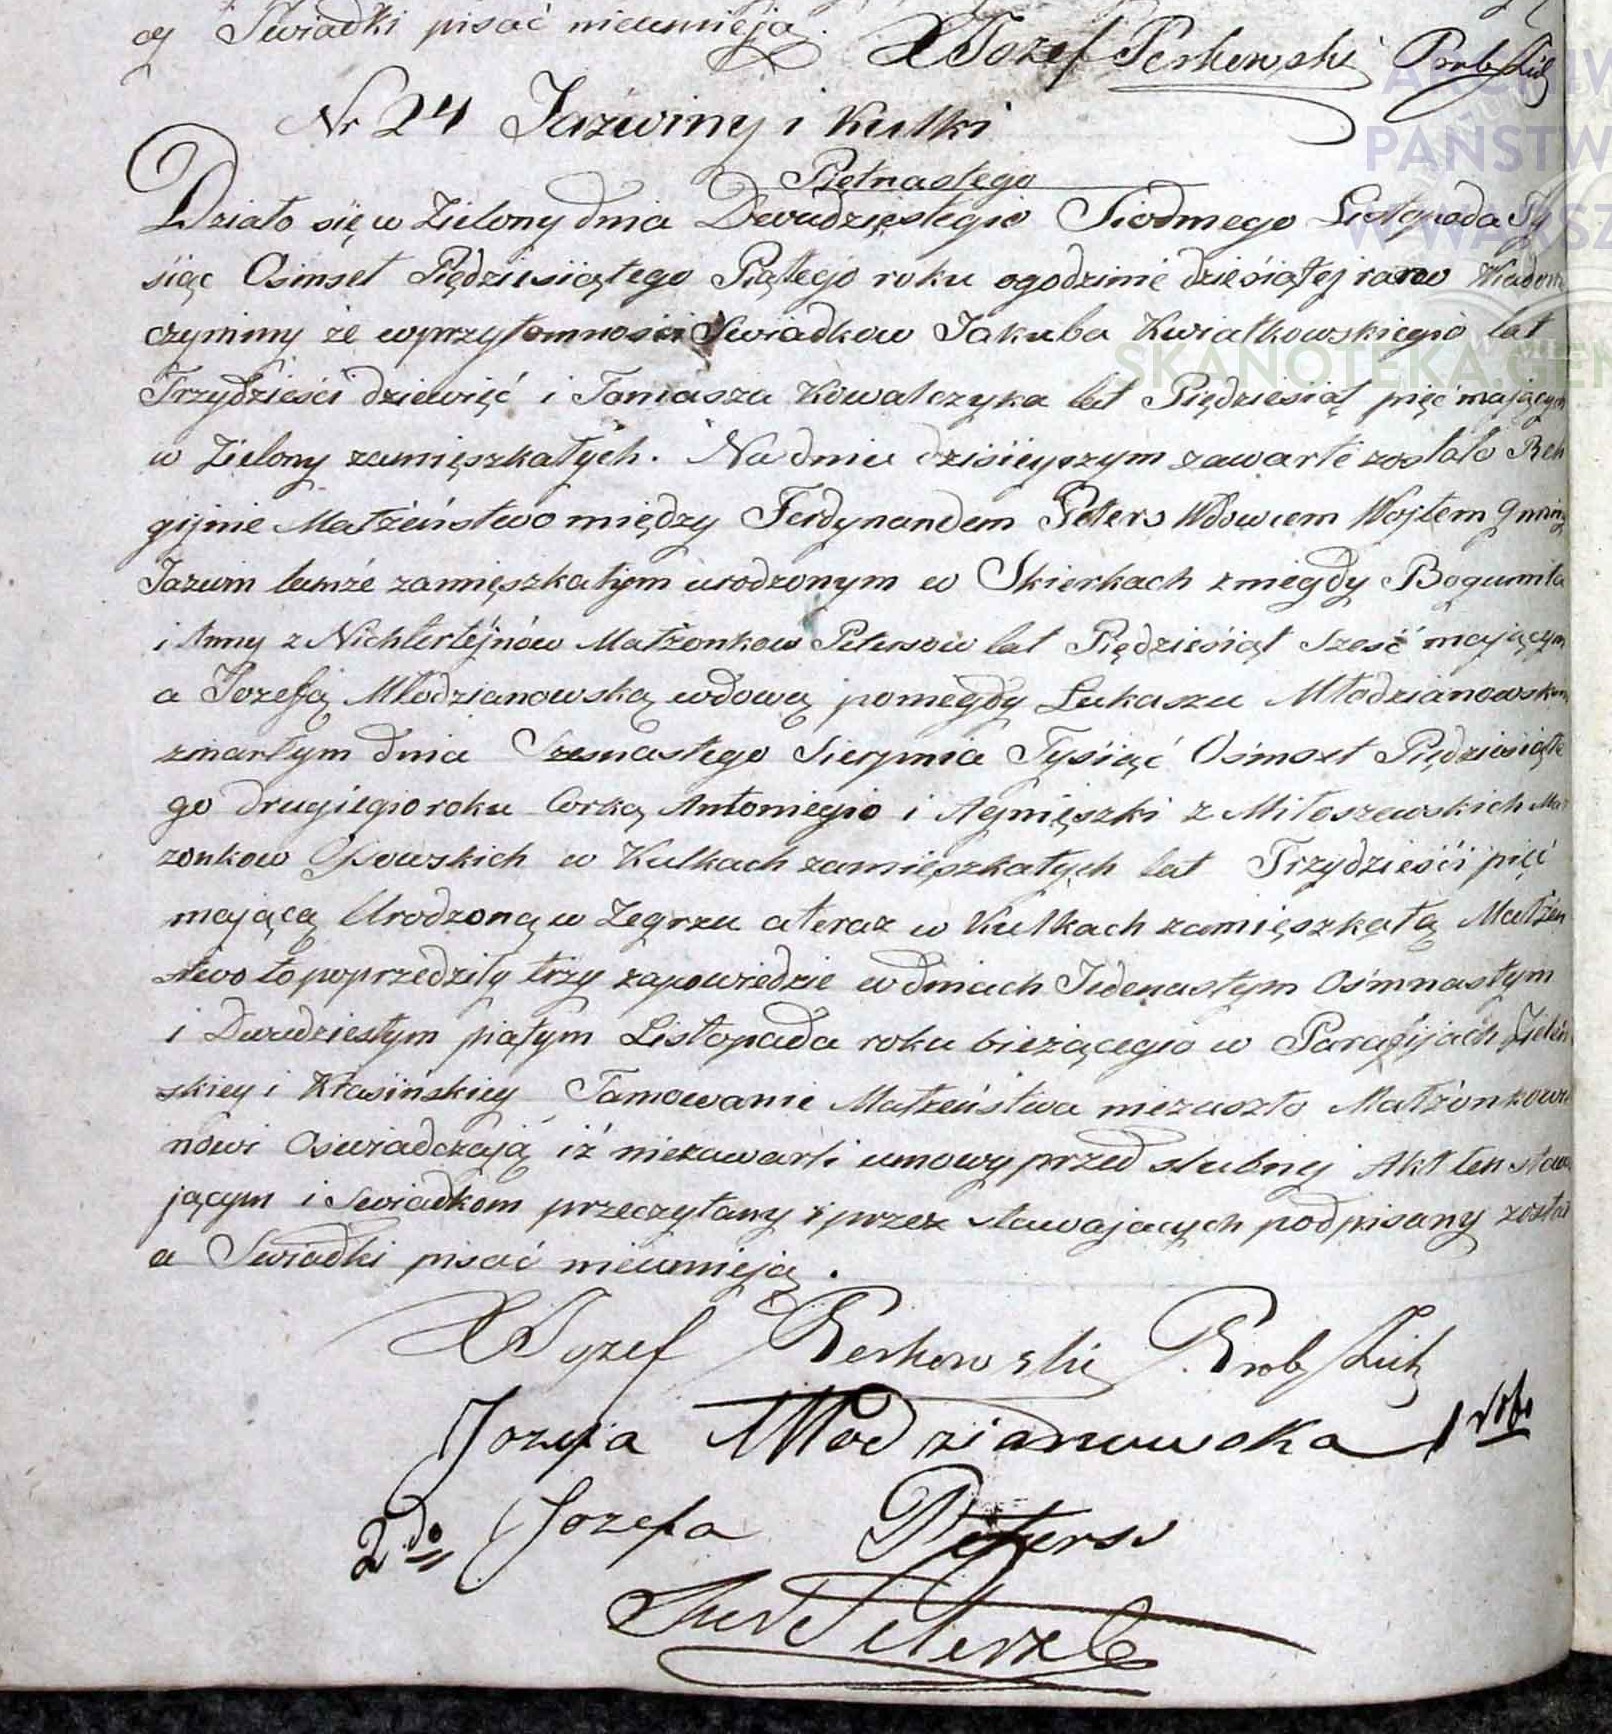 a Swiadki pisać nieumieją.
X Jozef Perkowski Prob
Nr 24 Jazwiny i Kulki
Piętnastego
Działo się w Zielony dnia Dwudziestegio Siodmego Listopada Ty
siąc Osimset Piędziesiątego Piątego roku ogodzinie dziesiątej rano Wiadom
czynimy że wprzytomnosci Swiadkow Jakuba Kwiatkowskiegio lat
Trzydzieści dziewięć i Tomasza Kowalczyka lat Piędziesiąt pięć mających
w Zielony zamięszkałych. Na dniu dzisieyszym zawarte zostało Reli
gijnie Małżeństwo między Ferdynandem Peters Wdowcem Wojtem Gminy
Jazwin tamże zamięszkałym urodzonym w Skierkach zmiegdy Bogumiła
i Anny z Małżonkow Petersow lat Piędziesiąt Sześć mającym
a Jozefą Młodzianowską wdową pomegdy Lukaszu Młodzianowskim
zmarłym dnia Szesnastego Sierpnia Tysiąć Ośmset Piędziesiąte
go drugiegio roku Corką Antoniegio i Agnięszki z Miłoszewskich Mał
zonkow w Kulkach zamięszkałych lat Trzydzieści pięć
mającą Urodzoną w Zegrzu ateraz w Kulkach zamięszkałą Małżen
stwo to poprzedziły trzy zapowiedzie w dniach Jedenastym Ośmnastym
i Dwudziestym piątym Listopada roku bieżącegio w Parafijach Zieleń
skiey i Kłasińskiey Tamowanie Małżeństwa niezaszło Małżonkowie
nowi Oswiadczają iż niezawarli umowy przed slubney Akt ten stawa
jącym i Swiadkom przeczytany i przez stawających podpisany został
a Swiadki pisać nieumieją.
X Jozef Perkowski Prob
Jozefa Młodzianowska 1 voto
2do Jozefa Peters
ARCHIW
PAŃSTW
W WARSZ
SKANOTEKA.GEN